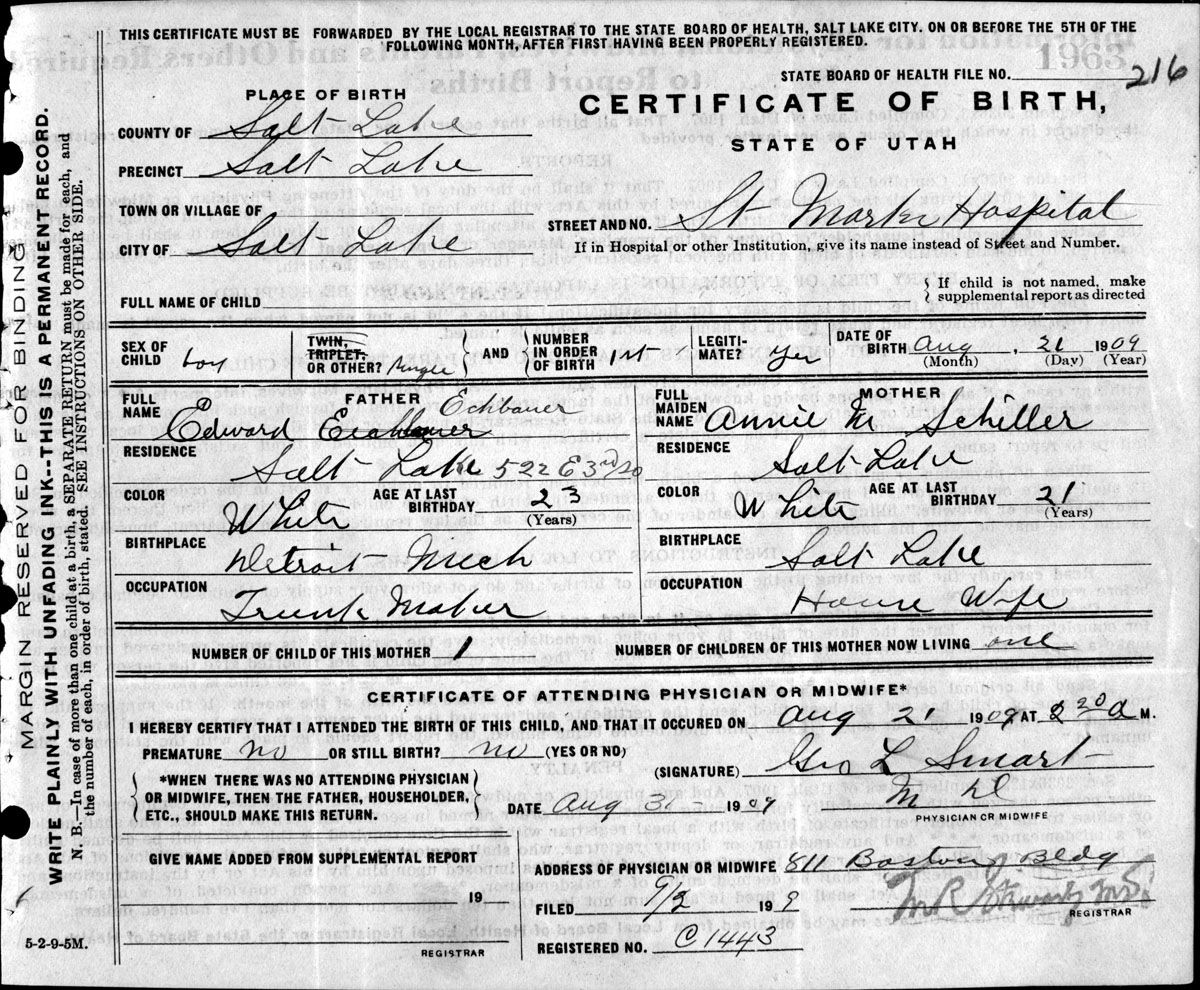 THIS CERTIFICATE MUST BE FORWARDED BY THE LOCAL REGISTRAR TO THE STATE BOARD OF HEALTH, SALT LAKE CITY. ON OR BEFORE THE 5TH OF THE
FOLLOWING MONTH, AFTER FIRST HAVING BEEN PROPERLY REGISTERED.
STATE BOARD OF HEALTH FILE NO. 216
PLACE OF BIRTH
CERTIFICATE OF BIRTH,
STATE OF UTAH
COUNTY OF Salt Lake
PRECINCT Salt Lake
TOWN OR VILLAGE OF
STREET AND NO. St Marks Hospital
CITY OF Salt Lake
If in Hospital or other Institution, give its name instead of Street and Number.
FULL NAME OF CHILD
If child is not named, make
supplemental report as directed
SEX OF CHILD boy
TWIN, TRIPLET, OR OTHER? Single
AND NUMBER IN ORDER OF BIRTH 1st
LEGITI-MATE? Yes
DATE OF BIRTH Aug, 21 1909
(Month) (Day) (Year)
FATHER
FULL NAME Edward Eichbauer Echbauer
RESIDENCE Salt Lake 522 E 3rd So
COLOR White AGE AT LAST BIRTHDAY 23
(Years)
BIRTHPLACE Detroit Mich
OCCUPATION Trunk Maker
MOTHER
FULL MAIDEN NAME Annie M Schiller
RESIDENCE Salt Lake
COLOR White AGE AT LAST BIRTHDAY 21
(Years)
BIRTHPLACE Salt Lake
OCCUPATION House Wife
NUMBER OF CHILD OF THIS MOTHER 1 NUMBER OF CHILDREN OF THIS MOTHER NOW LIVING one
CERTIFICATE OF ATTENDING PHYSICIAN OR MIDWIFE*
I HEREBY CERTIFY THAT I ATTENDED THE BIRTH OF THIS CHILD, AND THAT IT OCCURED ON Aug 21 1909 AT 2 20 a M.
PREMATURE no OR STILL BIRTH? no (YES OR NO)
*WHEN THERE WAS NO ATTENDING PHYSICIAN
OR MIDWIFE, THEN THE FATHER, HOUSEHOLDER,
ETC., SHOULD MAKE THIS RETURN.
(SIGNATURE) Geo L Smart
M D
PHYSICIAN OR MIDWIFE
DATE Aug 31 1909
GIVE NAME ADDED FROM SUPPLEMENTAL REPORT
19
REGISTRAR
ADDRESS OF PHYSICIAN OR MIDWIFE 811 Boston Bldg
FILED 9/3 19 9
REGISTRAR
REGISTERED NO. C1443
5-2-9-5M.
MARGIN RESERVED FOR BINDING
WRITE PLAINLY WITH UNFADING INK--THIS IS A PERMANENT RECORD.
N. B.—In case of more than one child at a birth, a SEPARATE RETURN must be made for each, and
the number of each, in order of birth, stated. SEE INSTRUCTIONS ON OTHER SIDE.